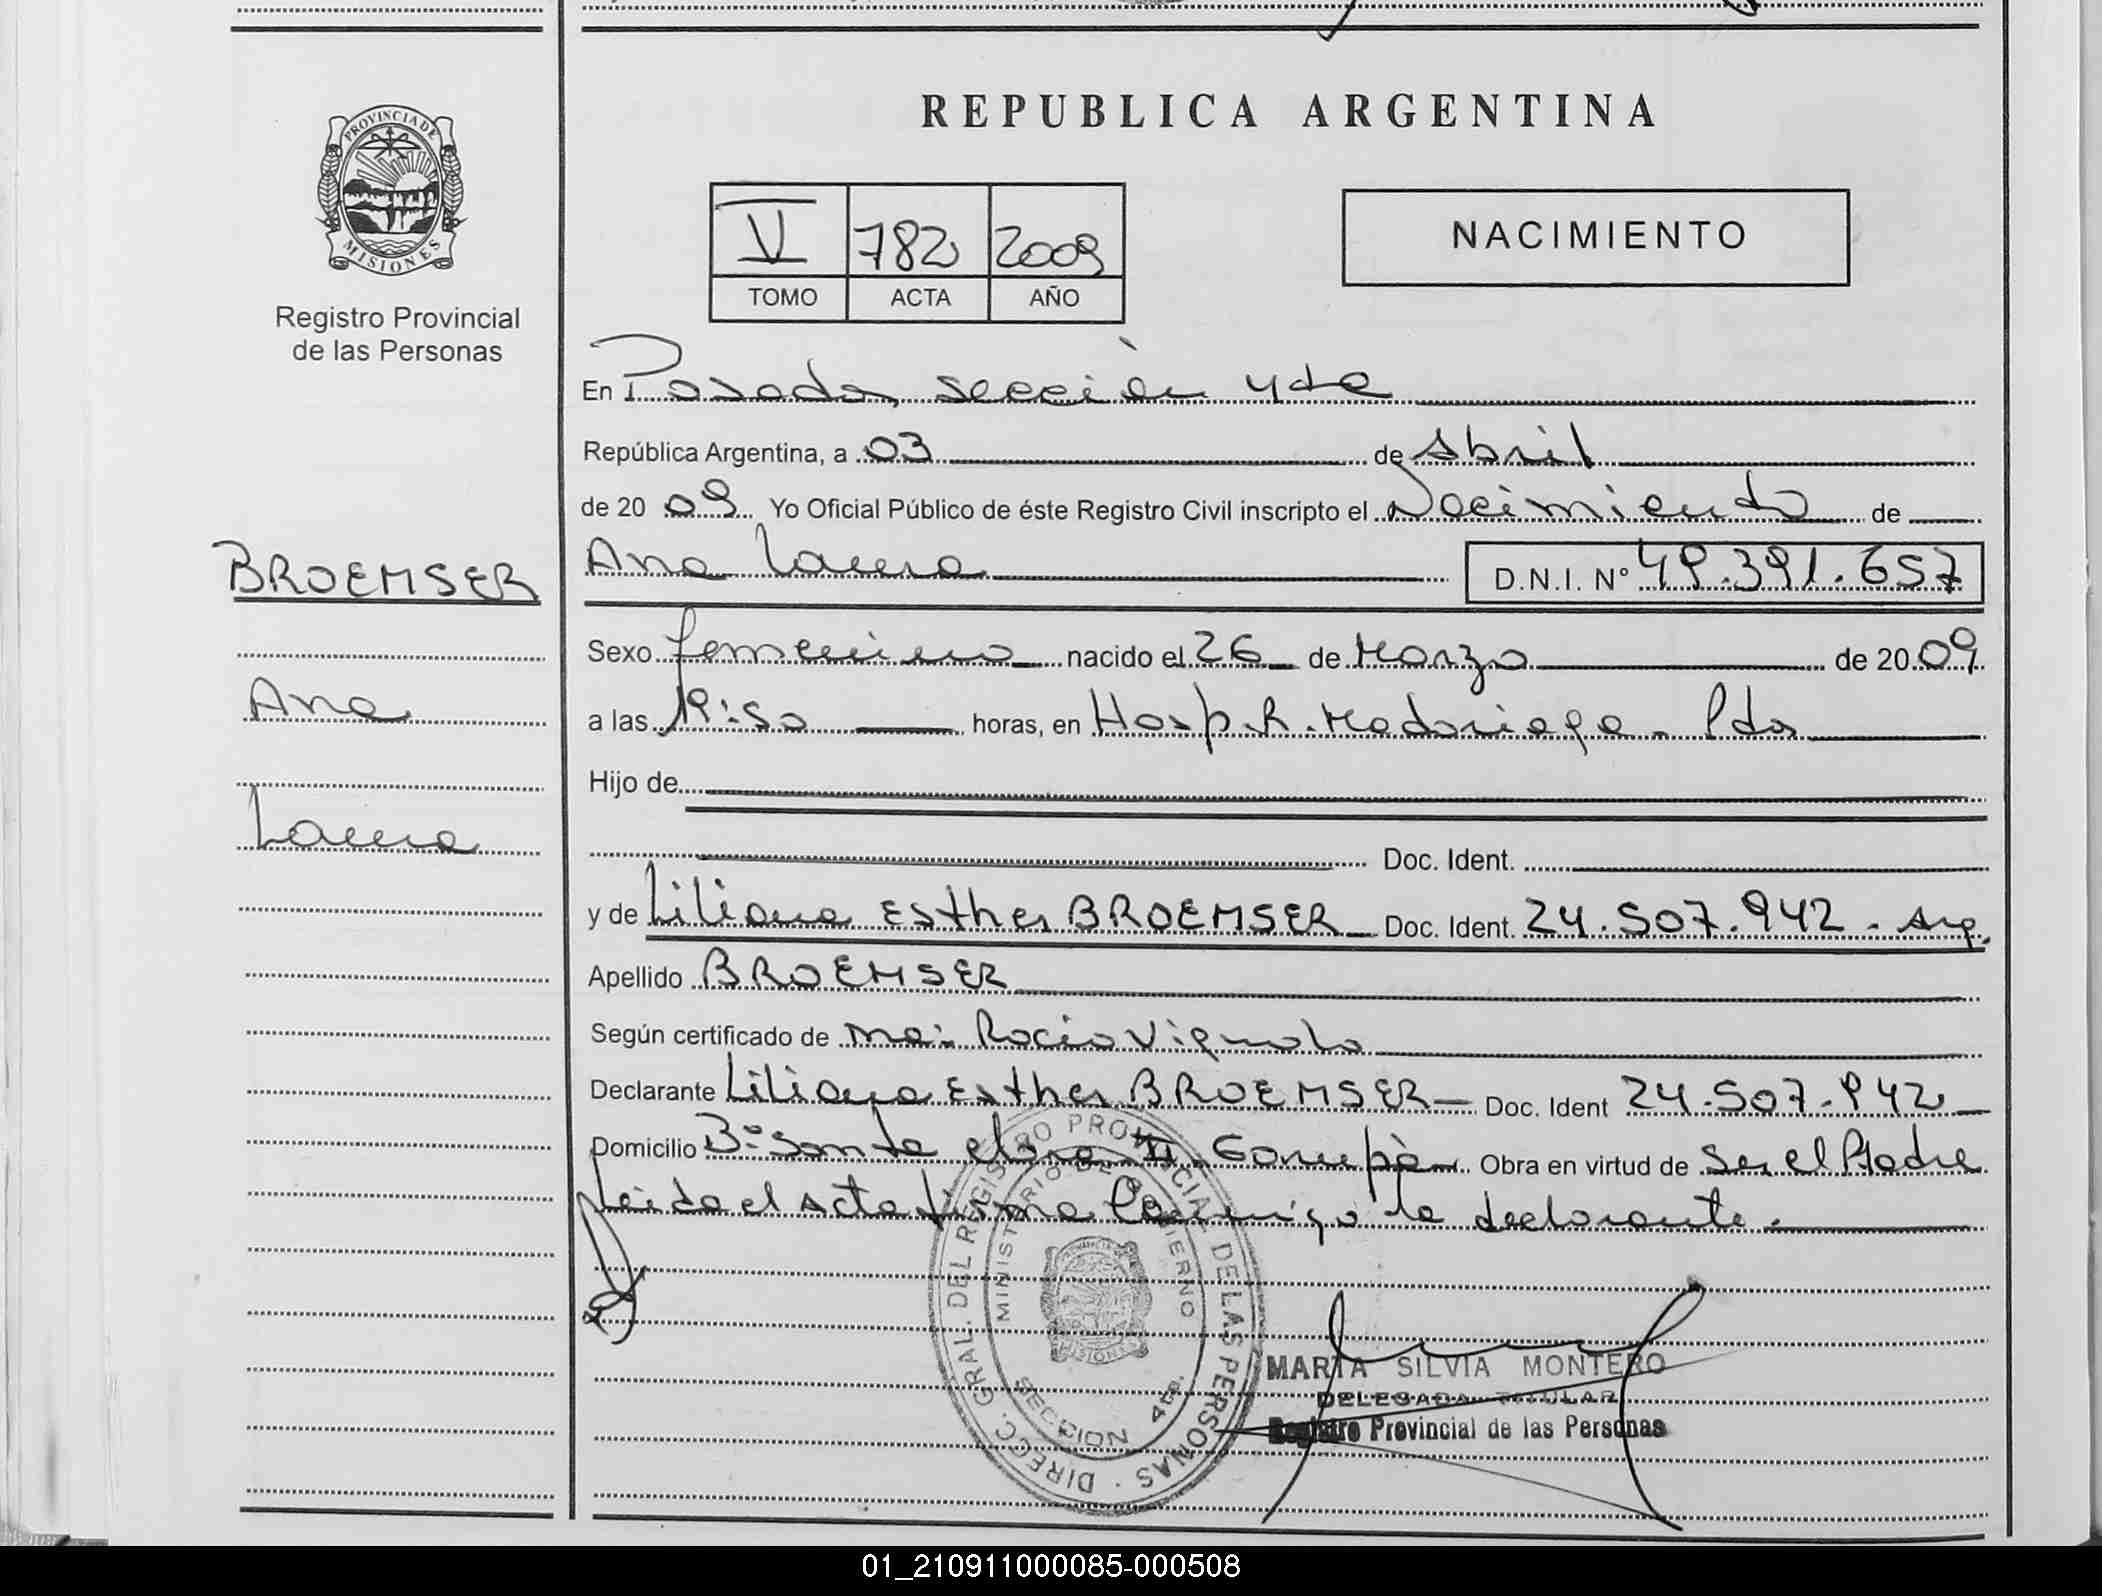 REPUBLICA ARGENTINA
PROVINCIA DE
MISIONES
Registro Provincial
de las Personas
V 782 2009
TOMO ACTA AÑO
NACIMIENTO
En Posadas, sección 4ta
República Argentina, a 03 de Abril
de 20 09 Yo Oficial Público de éste Registro Civil inscripto el Nacimiento de
BROEMSER
Ana
Laura
Ana Laura D.N.I. Nº 49.391.657
Sexo femenino nacido el 26 de Marzo de 20 09
a las 19:50 horas, en Hosp. R. Madariaga - Pdas
Hijo de
Doc. Ident.
y de Liliana Esther BROEMSER Doc. Ident. 24.507.942 - Arg.
Apellido BROEMSER
Según certificado de Ma: Rocio Vignolo
Declarante Liliana Esther BROEMSER Doc. Ident 24.507.942
Domicilio Bº Santa Clara II Garupà Obra en virtud de Ser el Madre
Leida el Acta firma Conmigo la declarante.
DIRECC. GRAL. DEL REGISTRO PROVINCIAL DE LAS PERSONAS
MINISTERIO DE GOBIERNO
MISIONES
SECCION 4ta.
MARTA SILVIA MONTERO
DELEGADA TITULAR
Registro Provincial de las Personas
01_210911000085-000508